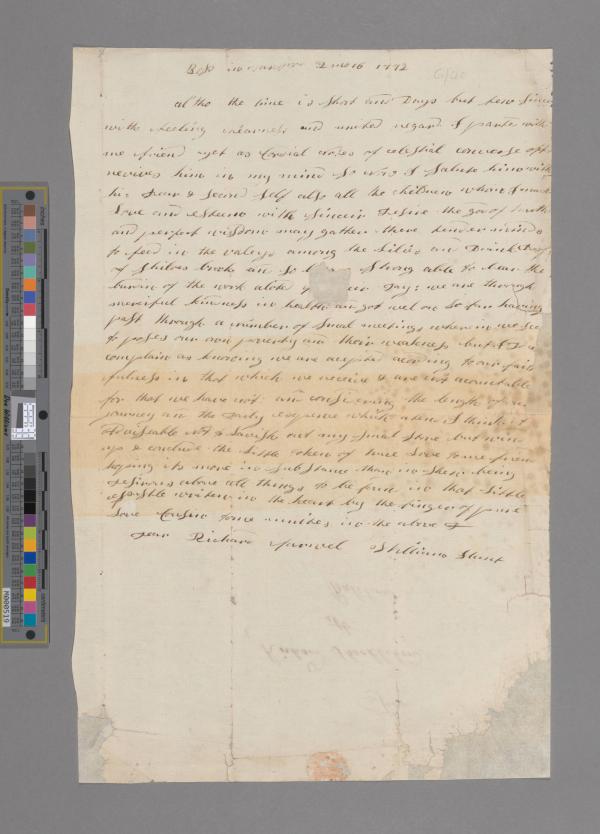 2 mo 16 1772
altho the time is short and Days but few Since
with feeling nearness and united regard I parted with
me friend yet as Cordial of celestial converse oft
revives him in my mind so now I Salute him with
his Dear & Second Self also all the children whom I much
Love and esteem with Sincear Desire the god of truth
and perfect wisdom may gather there tender minds
to feed in the valleys among the Lilies and Drink
of Shiloes brook and so Strong able to bear the
burdin of the work alote Day: we are through
merciful kindness in health and got wel on So far having
past through a number of Small meetings wherein we See
poses our own poverty and their weakness but I
complain as knowing we are acording to our faith
fulness in that which we receive & are not acountable
for that we have not and considering the length of
journey and the Daily expence which when I think it
Advisable not to Lavish out my Small Store but wind
up & conclude this little token of true Love to me friend
hoping its more in Substance than in Shew being
Desirous above all things to be found in that Little
epistle writen in the heart by the finger of pure
Love Cousin unites in the above
Dear Richard farewel William Hunt